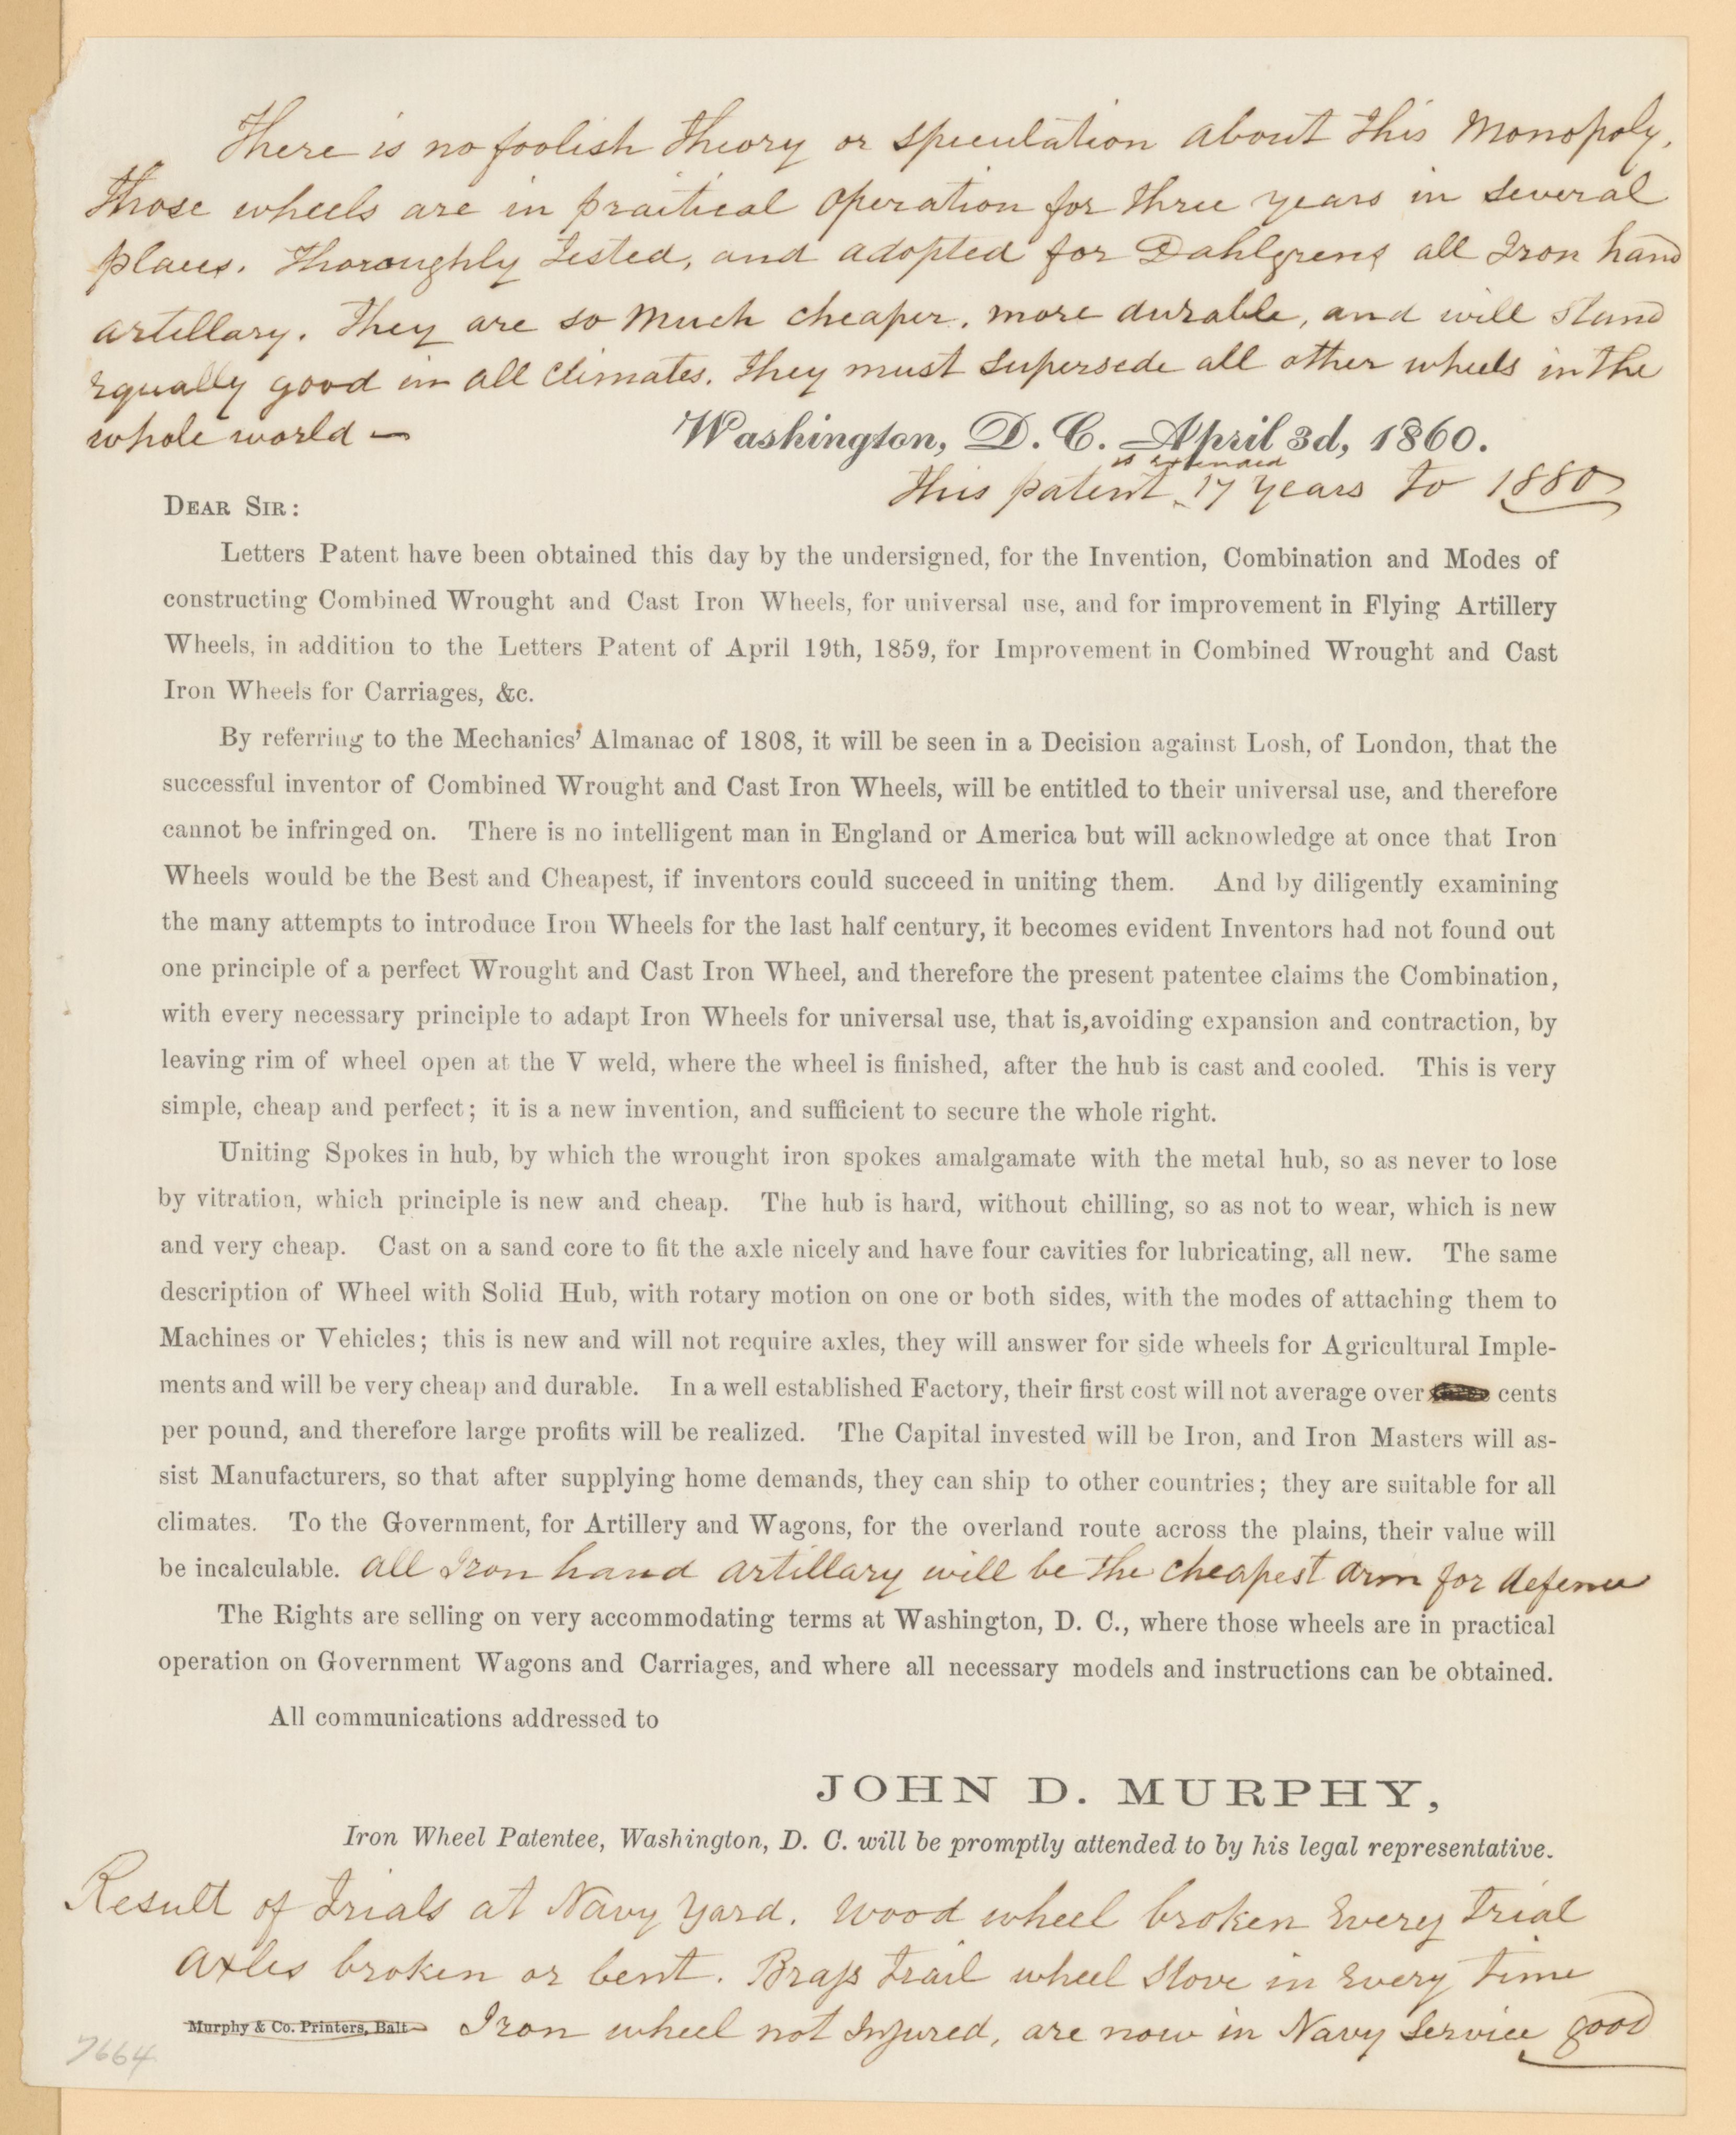 There is no foolish theory or speculation about this Monopoly.
Those wheels are in practical operation for three years in several
places. Thoroughly tested, and adopted for Dahlgrens all Iron hand
artillary. They are so much cheaper, more durable, and will stand
equally good in all climates. They must supersede all other wheels in the
whole world —
Washington, D. C. April 3d, 1860.
is extended
This patent 17 years to 1880
DEAR SIR:
Letters Patent have been obtained this day by the undersigned, for the Invention, Combination and Modes of
constructing Combined Wrought and Cast Iron Wheels, for universal use, and for improvement in Flying Artillery
Wheels, in addition to the Letters Patent of April 19th, 1859, for Improvement in Combined Wrought and Cast
Iron Wheels for Carriages, &c.
By referring to the Mechanics' Almanac of 1808, it will be seen in a Decision against Losh, of London, that the
successful inventor of Combined Wrought and Cast Iron Wheels, will be entitled to their universal use, and therefore
cannot be infringed on. There is no intelligent man in England or America but will acknowledge at once that Iron
Wheels would be the Best and Cheapest, if inventors could succeed in uniting them. And by diligently examining
the many attempts to introduce Iron Wheels for the last half century, it becomes evident Inventors had not found out
one principle of a perfect Wrought and Cast Iron Wheel, and therefore the present patentee claims the Combination,
with every necessary principle to adapt Iron Wheels for universal use, that is, avoiding expansion and contraction, by
leaving rim of wheel open at the V weld, where the wheel is finished, after the hub is cast and cooled. This is very
simple, cheap and perfect; it is a new invention, and sufficient to secure the whole right.
Uniting Spokes in hub, by which the wrought iron spokes amalgamate with the metal hub, so as never to lose
by vitration, which principle is new and cheap. The hub is hard, without chilling, so as not to wear, which is new
and very cheap. Cast on a sand core to fit the axle nicely and have four cavities for lubricating, all new. The same
description of Wheel with Solid Hub, with rotary motion on one or both sides, with the modes of attaching them to
Machines or Vehicles; this is new and will not require axles, they will answer for side wheels for Agricultural Imple-
ments and will be very cheap and durable. In a well established Factory, their first cost will not average over cents
per pound, and therefore large profits will be realized. The Capital invested will be Iron, and Iron Masters will as-
sist Manufacturers, so that after supplying home demands, they can ship to other countries; they are suitable for all
climates. To the Government, for Artillery and Wagons, for the overland route across the plains, their value will
be incalculable. all Iron hand artillary will be the cheapest arm for defence
The Rights are selling on very accommodating terms at Washington, D. C., where those wheels are in practical
operation on Government Wagons and Carriages, and where all necessary models and instructions can be obtained.
All communications addressed to
JOHN D. MURPHY,
Iron Wheel Patentee, Washington, D. C. will be promptly attended to by his legal representative.
Result of trials at Navy Yard. Wood wheel broken every trial
axles broken or bent. Brass trail wheel stove in every time
Murphy & Co. Printers, Balt. Iron wheel not Injured, are now in Navy Service good
7664